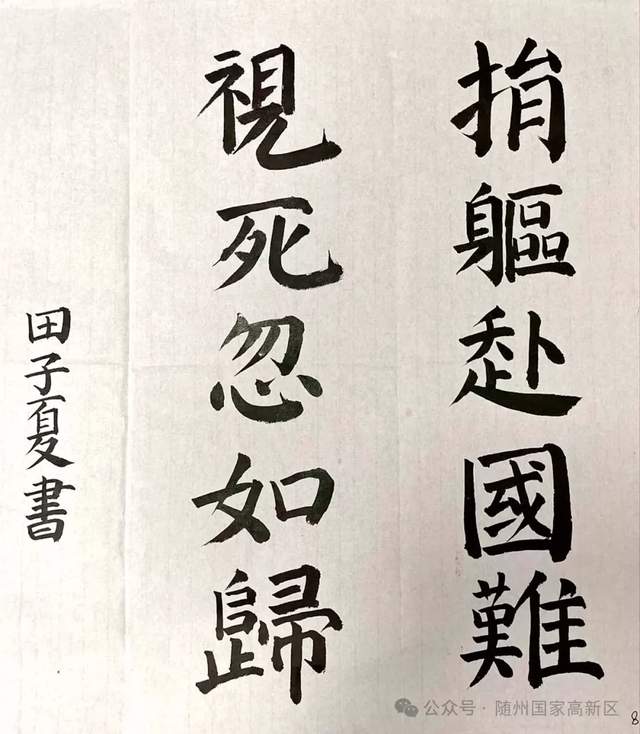 捐軀赴國難
視死忽如歸
田子夏書
公众号·随州国家高新区
8